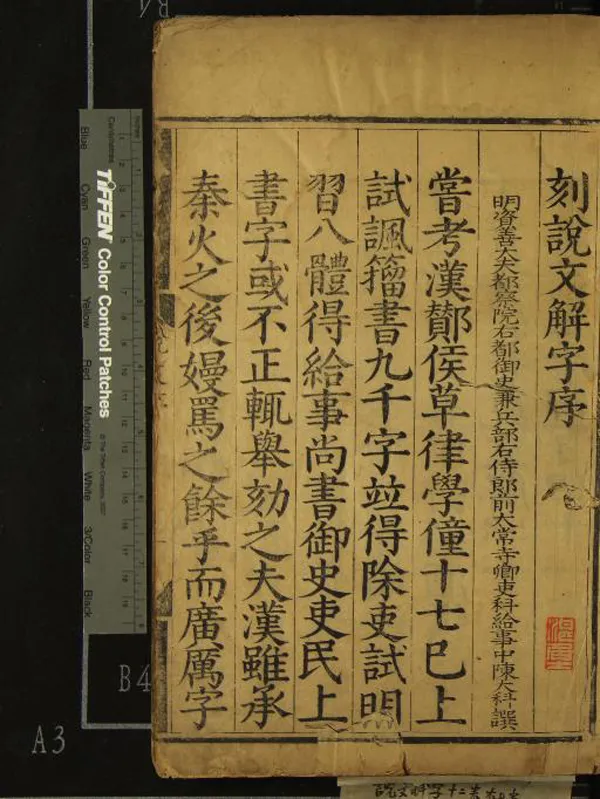 刻說文解字序
明資善大夫都察院右都御史兼兵部右侍郎前太常寺卿吏科給事中陳大科譔
嘗考漢酇侯草律學僮十七巳上
試諷籀書九千字竝得除吏試明
習八體得給事尚書御史吏民上
書字或不正輒舉劾之夫漢雖承
秦火之後嫚罵之餘乎而廣厲字
Inches
Centimetres
TIFFEN Color Control Patches
© The Tiffen Company, 2007
Blue
Cyan
Green
Yellow
Red
Magenta
White
3/Color
Black
B4
A3